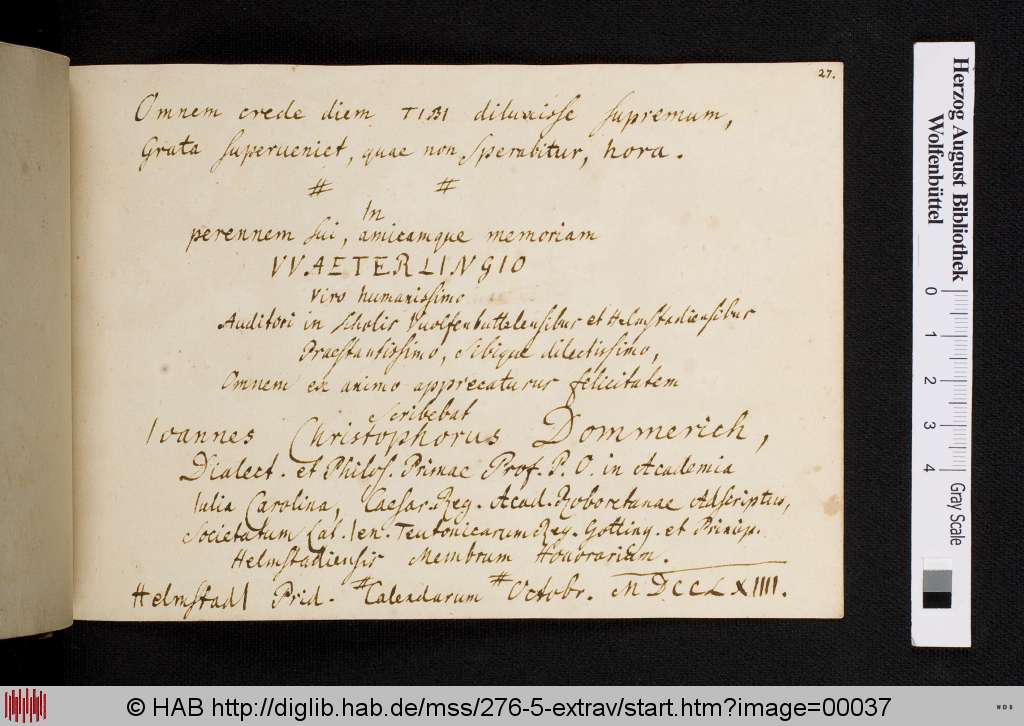 27.
Omnem crede diem TIBI diluxisse supremum,
Grata superueniet, quae non sperabitur, hora.
# #
In
perennem sui, amicamque memoriam
VVAETERLINGIO
Viro humanissimo
Auditori in scholis Vuolfenbuttelensibus et Helmstadiensibus
Praestantissimo, sibique dilectissimo,
Omnem ex animo apprecaturus felicitatem
scribebat
Ioannes Christophorus Dommerich,
Dialect. et Philos. Primae Prof. P. O. in Academia
Iulia Carolina, Caesar. Reg. Acad. Roboretanae Adscriptus,
Societatum Lat. Ien. Teutonicarum Reg. Gotting. et Princip.
Helmstadiensis Membrum Honorarium.
Helmstad Prid. # Calendarum # Octobr. MDCCLXIIII.
Herzog August Bibliothek
Wolfenbüttel
0 1 2 3 4
Gray Scale
© HAB http://diglib.hab.de/mss/276-5-extrav/start.htm?image=00037
WDB